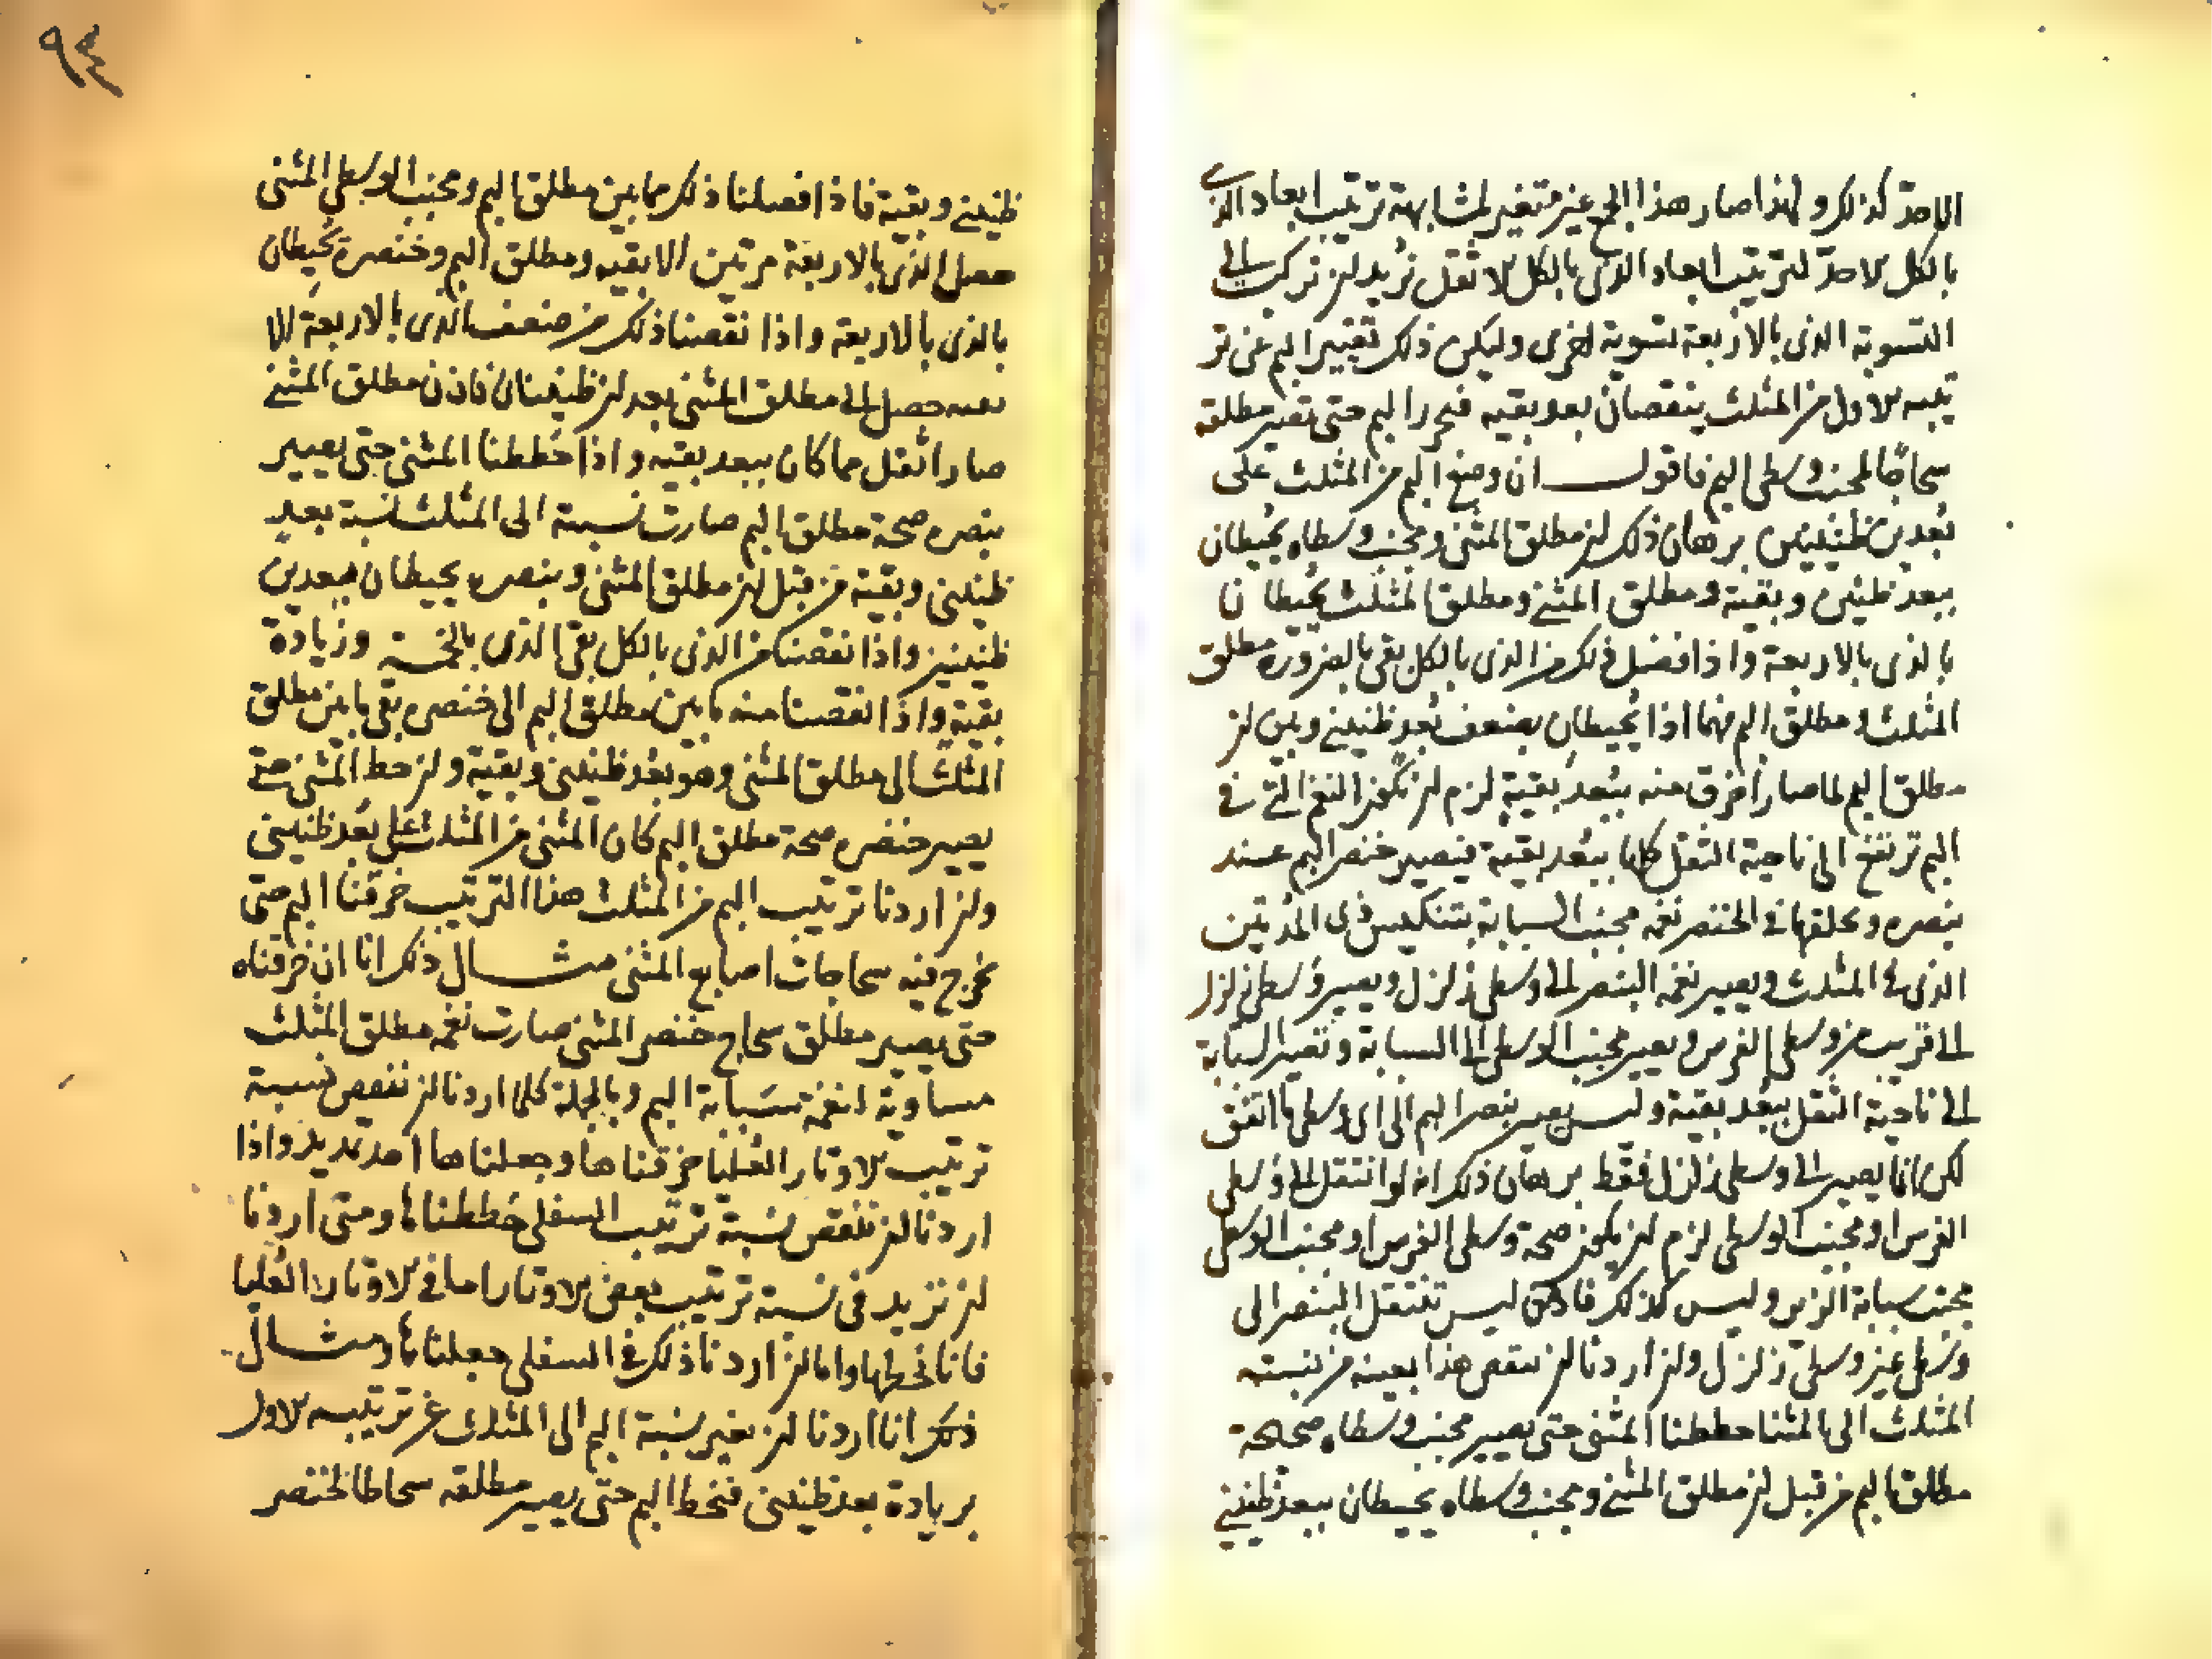 الاحدّ كذلك ولهذا صار هذا الجمع غير متغير لمشابهة ترتيب ابعاد الذي
بالكل الاحدّ لترتيب ابعاد الذي بالكل الاثقل نريد لن نركب الى
التسوية الذي بالاربعة تسوية اخرى وليكن ذلك تغيير البم عن تر
تيبه الاول من المثلث بنقصان بعد بقيه فنحرا البم حتى تصير مطلقه
سحاجًا لمجنب وسطى البم فاقول ان وضع البم من المثلث على
بُعدين طنينيين برهان ذلك لن مطلق المثنى ومجنب وسطاه يحيطان
ببعد طنيني وبقية ومطلق المثنى ومطلق المثلث يحيطا نا
بالذي بالاربعة واذا فضل ذلك من الذي بالكل بقى بالضرورة مطلق
المثلث ومطلق البم فهما اذا يحيطان بضعف بُعد طنيني وبين لن
مطلق البم لما صار اخرق منه ببُعد بقية لزم لن تكون النغم التي في
البم ترتفع الى ناحية الثقل كلها ببُعد بقية فيصير خنصر البم عند
بنصره ونحلقها في الخنصر نغمه مجنب السبابة بتنكيس ذي المدتين
الذي في المثلث ويصير نغمه البنصر الى وسطى زلزل ويصير وسطى زلزل
الى قريب من وسطى الفرس ويصير مجنب الوسطى الى السبابة وتصير السبابة
الى ناحية الثقل ببُعد بقية وليس يصير بنصر البم الى اي وسطى ما اتفق
لكن انما يصير الى وسطى زلزل فقط برهان ذلك انه لو انتقل الى وسطى
الفرس او مجنب الوسطى لزم لن يكون صحة وسطى الفرس او مجنب الوسطى
مجنب سبابة الزير وليس كذلك فاذن ليس تنتقل البنصر الى
وسطى غير وسطى زلزل ولن اردنا لن ننقص هذا بعينه من نسبته
المثلث الى المثنا حططنا المثنى حتى يصير مجنب وسطاه صحاحة
مطلق البم من قبل لن مطلق المثنى ومجنب وسطاه يحيطان ببعد طنيني
٩٤
طنيني وبقية فاذا فصلنا ذلك مما بين مطلق البم ومجنب الوسطى المثنى
حصل الذي بالاربعة مرتين الا بقيه ومطلق البم وخنصره يحيطان
بالذي بالاربعة واذا نقصنا ذلك من ضعف الذي بالاربعة الا
بقيه حصل الى مطلق المثنى بعد لن طنينان فاذن مطلق المثنى
صار اثقل مما كان ببعد بقيه واذا حططنا المثنى حتى يصير
بنصره صحة مطلق البم صارت نسبة الى المثلث نسبة بعد
طنيني وبقية من قبل لن مطلق المثنى وبنصره يحيطان ببعدين
طنينين واذا نقصنا من الذي بالكل بقى الذي بالخمسة وزيادة
بقية واذا نقصنا منه ما بين مطلق البم الى خنصره بقى ما بين مطلق
المثلث الى مطلق المثنى وهو بُعد طنيني وبقية ولن حط المثنى حتى
يصير خنصره صحة مطلق البم كان المثنى من المثلث على بُعد طنيني
ولن اردنا ترتيب البم من المثلث هذا الترتيب خرقنا البم حتى
تخرج فيه سحاجات اصابع المثنى مثال ذلك انا ان خرقناه
حتى يصير مطلق سحاج خنصر المثنى صارت نغمه مطلق المثلث
مساوية لنغمة سبابة البم وبالجملة كلما اردنا لن ننقص نسبة
ترتيب الاوتار العُليا خرقناها وجعلناها احد تمديد واذا
اردنا لن ننقص نسبة ترتيب السفلى حططناها ومتى اردنا
لن نزيد في نسبة ترتيب بعض الاوتار اما في الاوتار العُليا
فانا نحطها واما لن اردنا ذلك في السفلى جعلناها ومثال
ذلك انا اردنا لن نغير نسبة البم الى المثلث عن ترتيبه الاول
بزيادة بعد طنيني فنحط البم حتى يصير مطلقه سحاحا لخنصر